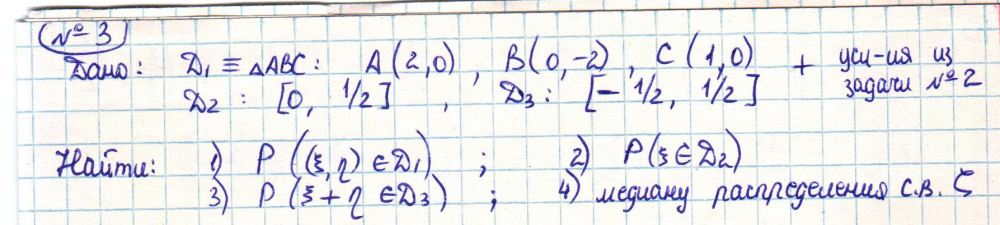 № 3
Дано: D₁ ≡ △ABC: A(2,0), B(0,-2), C(1,0) + усл-ия из
D₂: [0, 1/2], D₃: [-1/2, 1/2] задачи №2
Найти: 1) P((ξ,η) ∈ D₁); 2) P(ξ ∈ D₂)
3) P(ξ+η ∈ D₃); 4) медиану распределения с.в. ζ